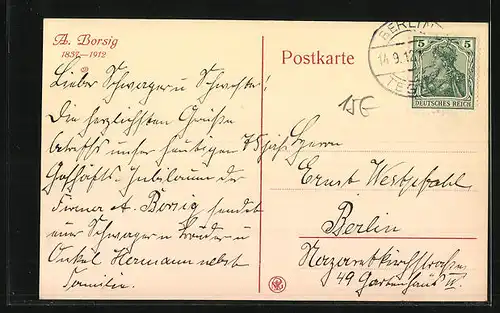 A. Borsig
1837–1912
Postkarte
BERLIN
14.9.12
TEG
5 5
DEUTSCHES REICH
15€
Lieber Schwager u Schwester!
Die herzlichsten Grüße
betreffs unser heutigen 75 jähr
Geschäfts-Jubiläum der
Firma A. Borsig sendet
euer Schwager u Bruder u
Onkel Hermann nebst
Familie.
Herrn
Ernst Westpfahl
Berlin
Nazarethkirchstrasse
49 Gartenhaus IV.